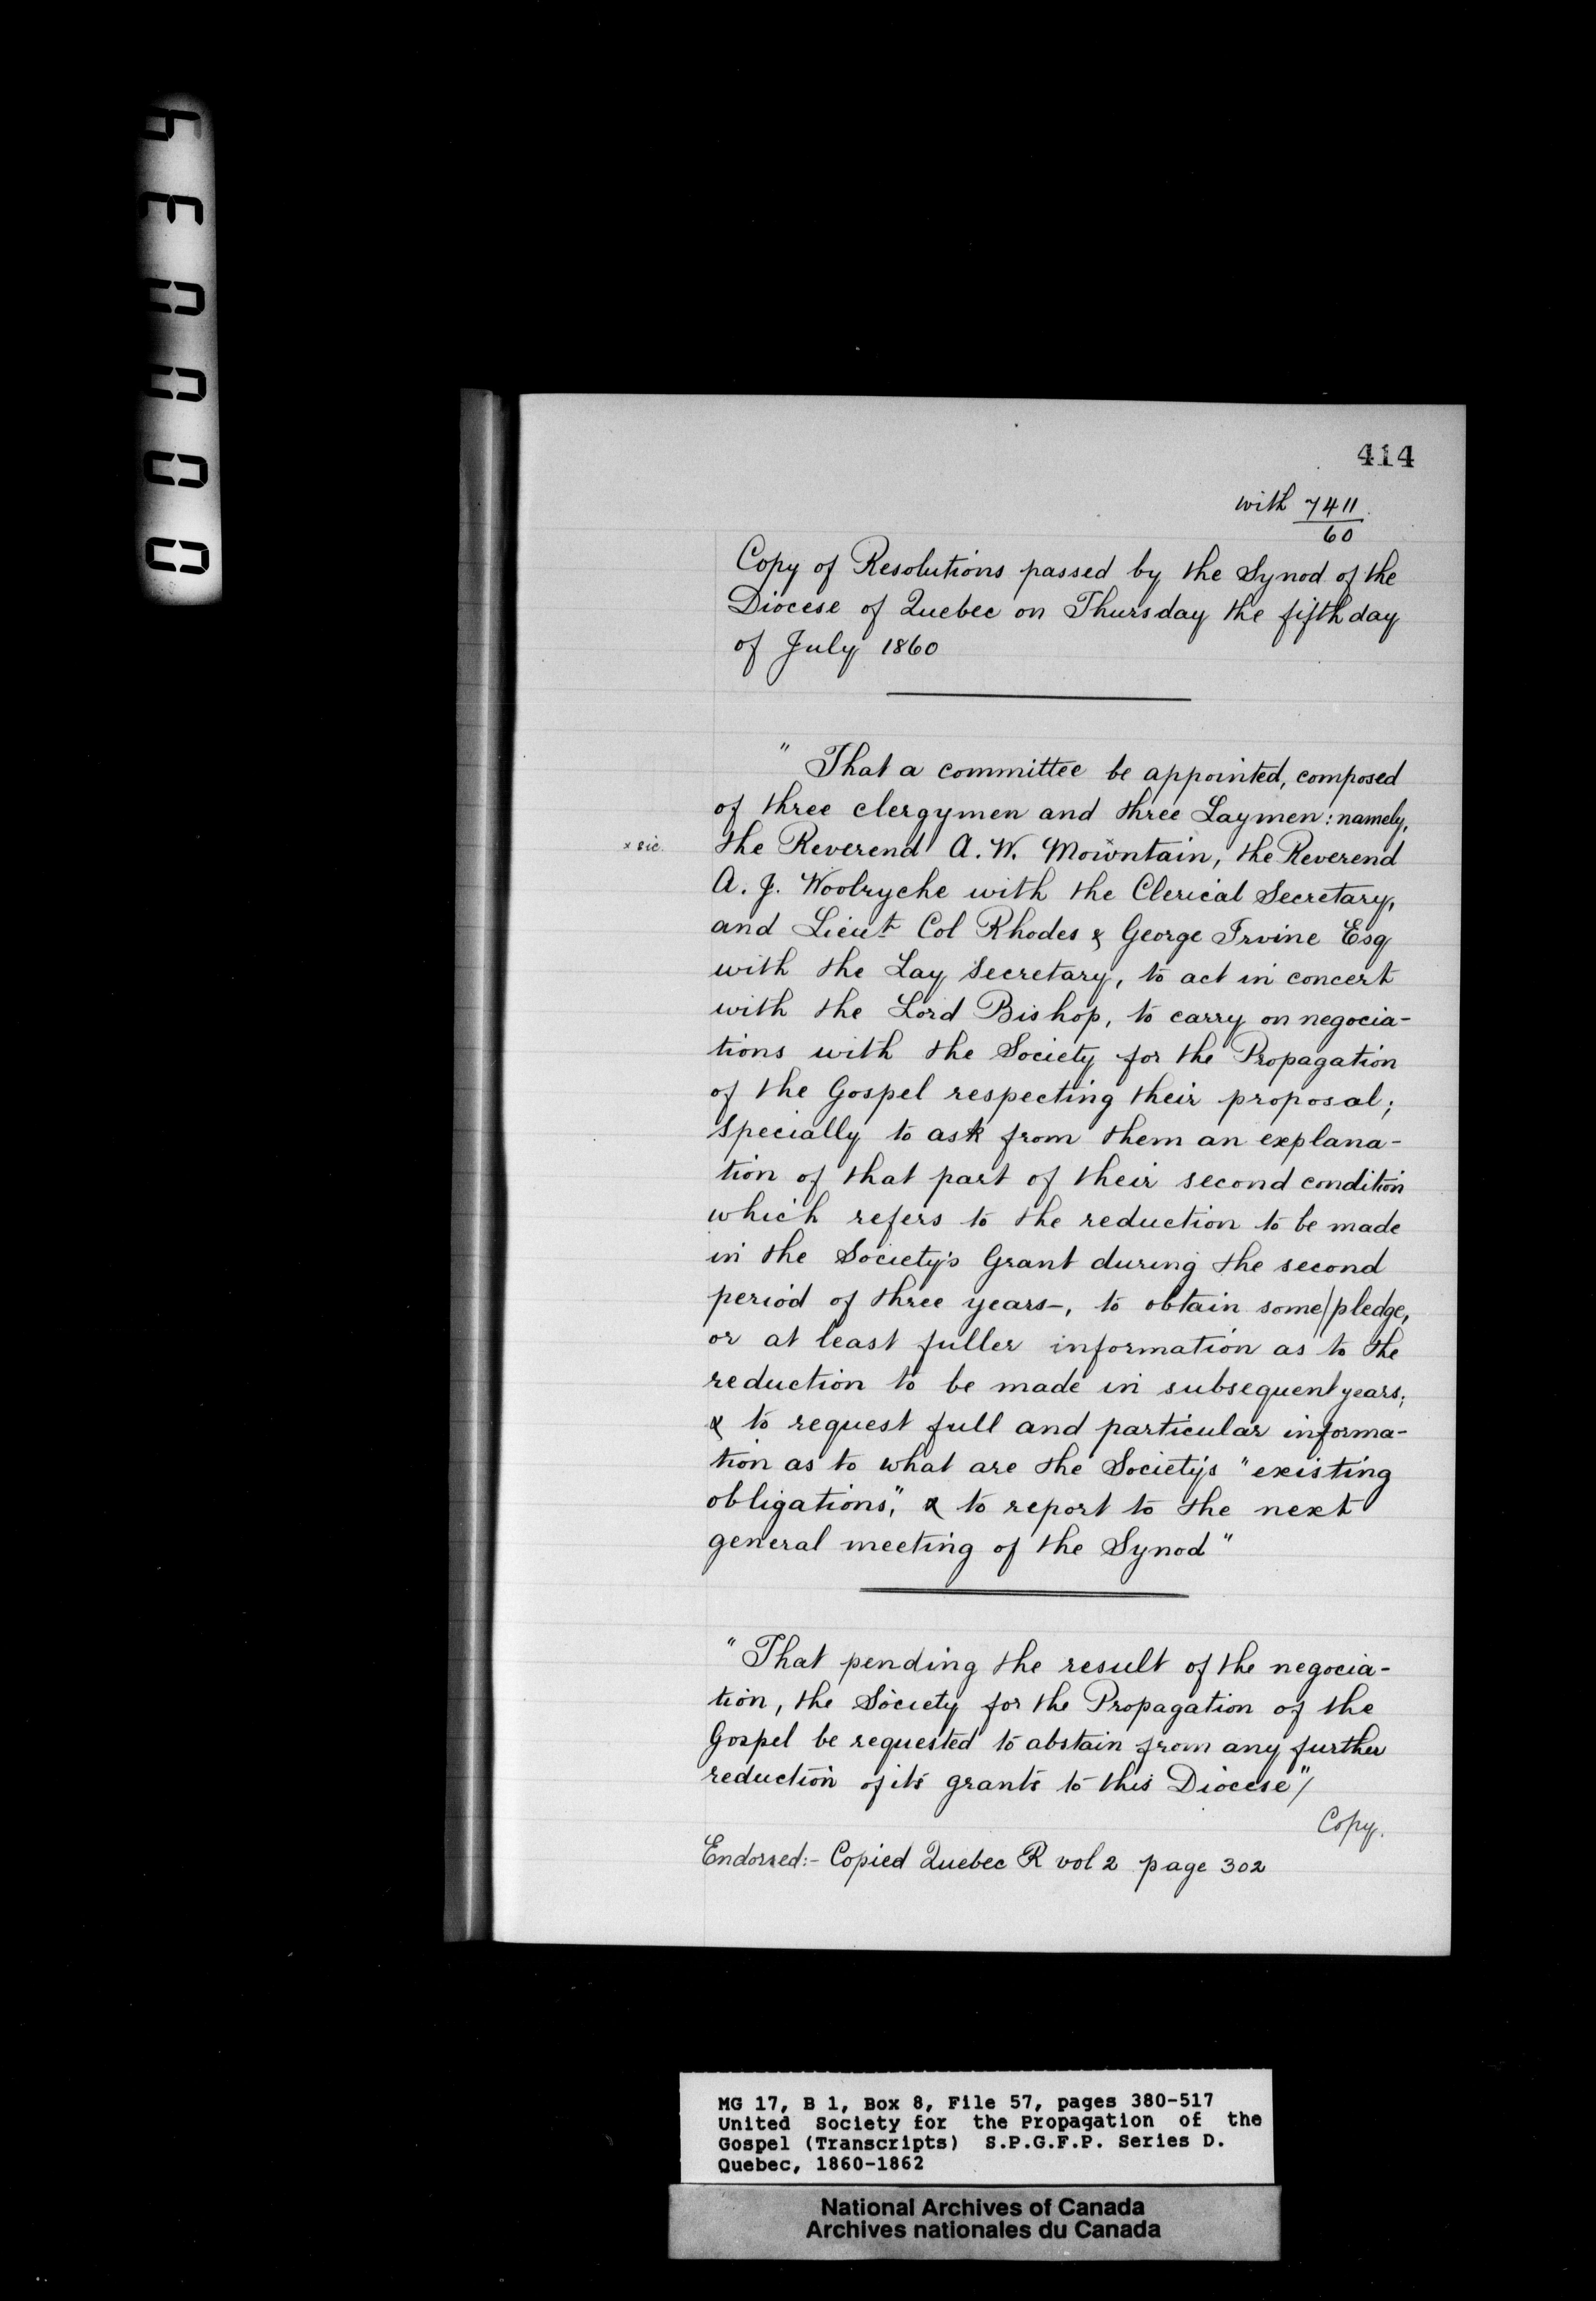 414
with 7411
60
Copy of Resolutions passed by the Synod of the
Diocese of Quebec on Thursday the fifth day
of July 1860
" That a committee be appointed, composed
of three clergymen and three Laymen: namely,
x sic.
the Reverend A. W. Mowntain, the Reverend
A. J. Woolryche with the Clerical Secretary,
and Lieut Col Rhodes & George Irvine Esq
with the Lay Secretary, to act in concert
with the Lord Bishop, to carry on negocia-
tions with the Society for the Propagation
of the Gospel respecting their proposal;
specially to ask from them an explana-
tion of that part of their second condition
which refers to the reduction to be made
in the Society's Grant during the second
period of three years-, to obtain some/pledge,
or at least fuller information as to the
reduction to be made in subsequent years;
& to request full and particular informa-
tion as to what are the Society's "existing
obligations", & to report to the next
general meeting of the Synod"
"That pending the result of the negocia-
tion, the Society for the Propagation of the
Gospel be requested to abstain from any further
reduction of its grants to this Diocese"/
Copy.
Endorsed:- Copied Quebec R vol 2 page 302
MG 17, B 1, Box 8, File 57, pages 380-517
United Society for the Propagation of the
Gospel (Transcripts) S.P.G.F.P. Series D.
Quebec, 1860-1862
National Archives of Canada
Archives nationales du Canada